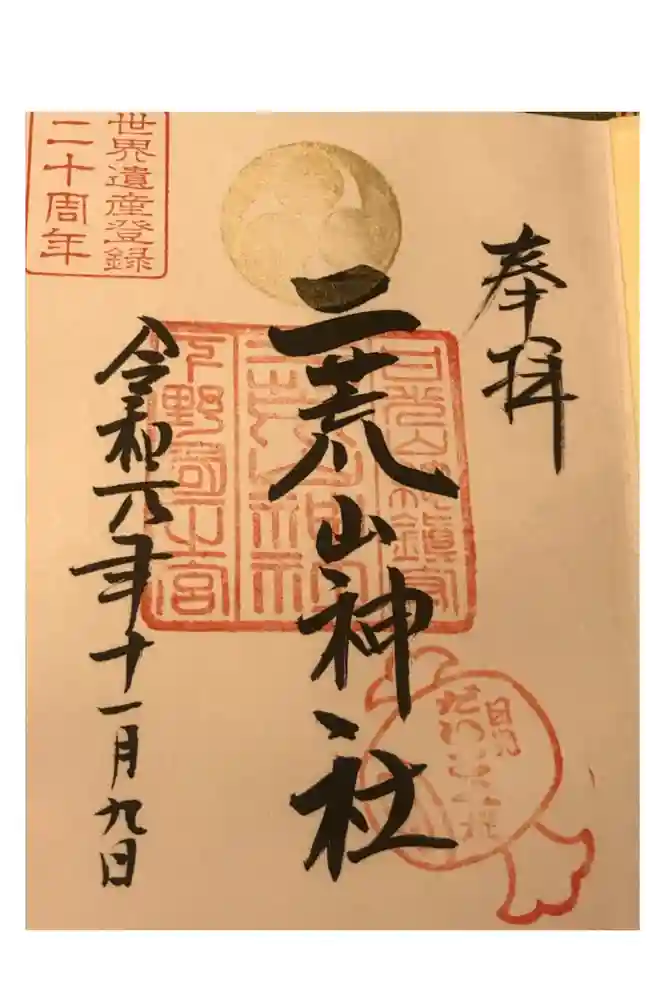 奉拝
二荒山神社
令和元年十一月九日
世界遺産登録
二十周年
日光山総鎮守
二荒山神社
下野國一宮
日光